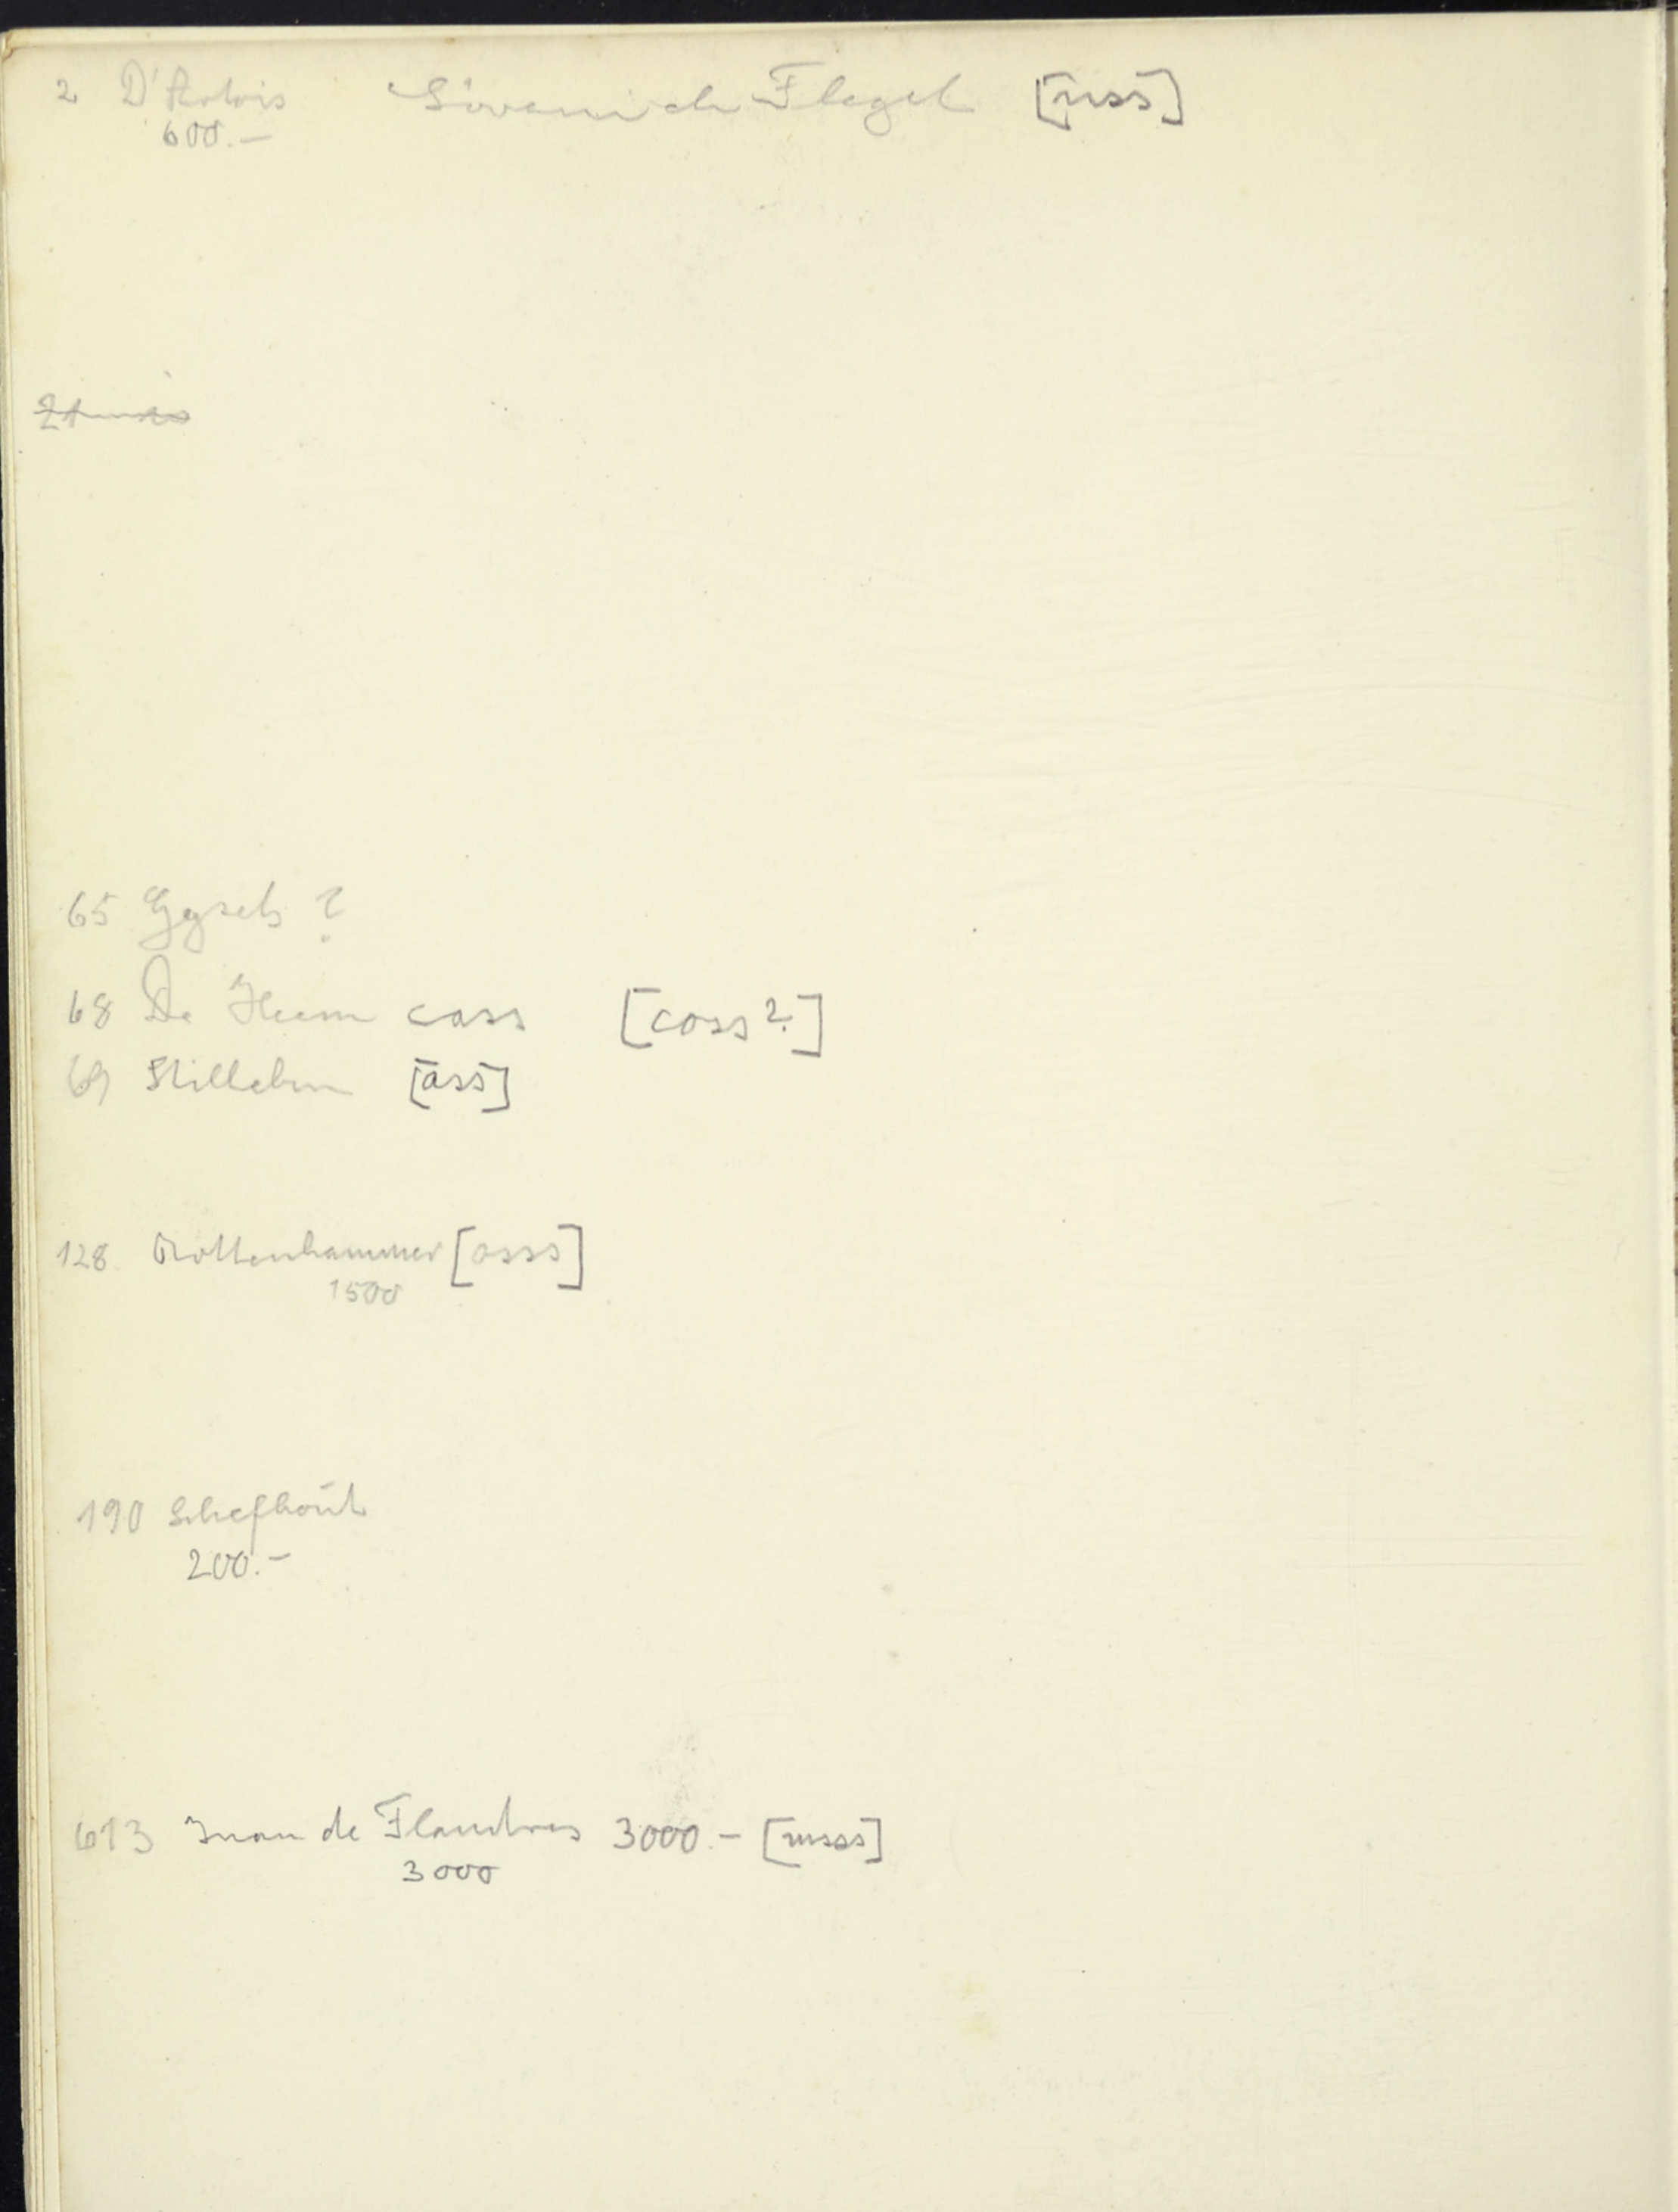 2 D'Artois Sövenich Flegel [uss]
600.-
65 Gysels ?
68 De Heem cass [coss?]
69 Stilleben [ass]
128 Rottenhammer [osss]
1500
190 Schelfhout
200.-
613 Juan de Flandres 3000.- [usss]
3000